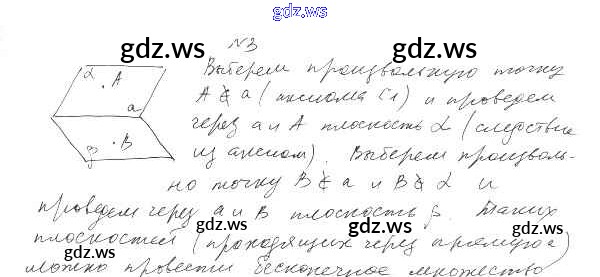 gdz.ws
N3
Выберем произвольную точку
A ∉ a (аксиома С1) и проведем
через a и A плоскость α (следствие
из аксиом). Выберем произволь-
но точку B ∉ a и B ∉ α и
проведем через a и B плоскость β. Таких
плоскостей (проходящих через прямую a)
можно провести бесконечное множество
α
A
a
β
B
gdz.ws
gdz.ws
gdz.ws
gdz.ws
gdz.ws
gdz.ws
gdz.ws